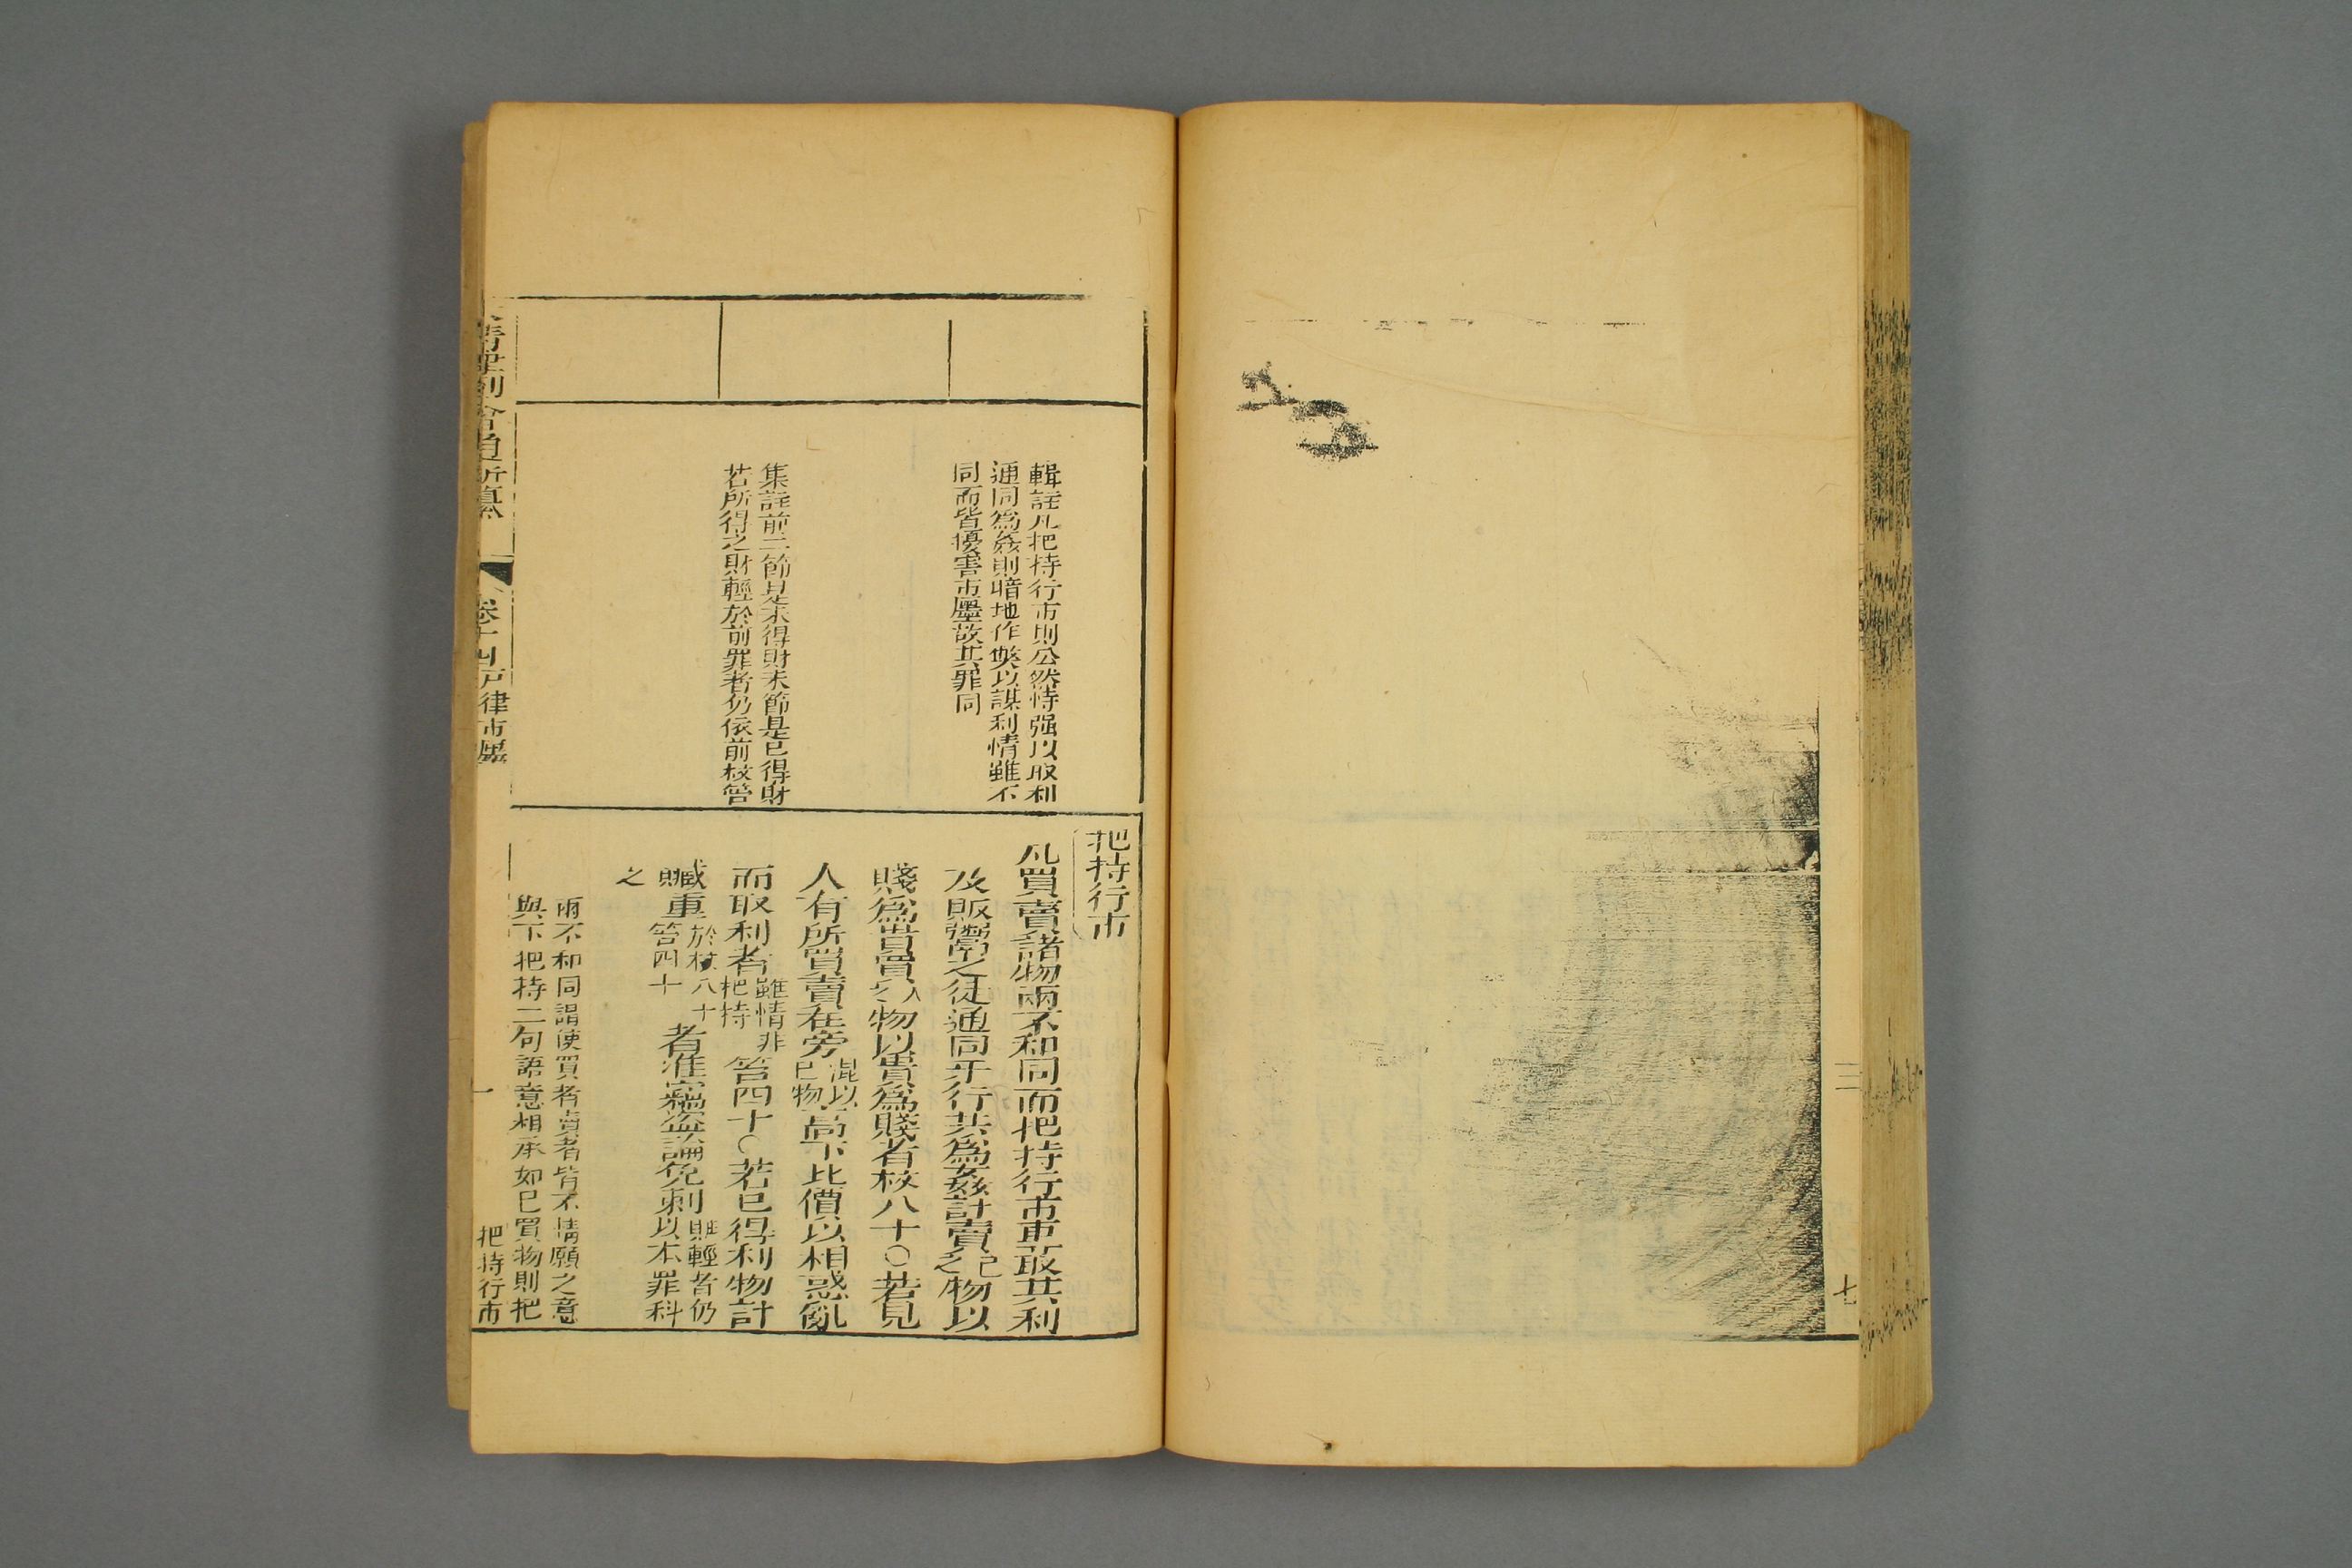 七
輯註凡把持行市則公然恃强以取利
通同爲姦則暗地作弊以謀利情雖不
同而皆擾害市廛故其罪同
集註前二節是未得財末節是已得財
若所得之財輕於前罪者仍依前杖笞
把持行市
凡買賣諸物兩不和同而把持行市專取其利
及販鬻之徒通同牙行共爲姦計賣己之物以
賤爲貴買人之物以貴爲賤者杖八十○若見
人有所買賣在旁混以己物高下比價以相惑亂
而取利者雖情非把持笞四十○若已得利物計
贓重於杖八十笞四十者准竊盜論免刺贓輕者仍以本罪科
之
兩不和同謂使買者賣者皆不情願之意
與下把持二句語意相承如已買物則把
大清律例會通新纂
卷十四戶律市廛
一
把持行市